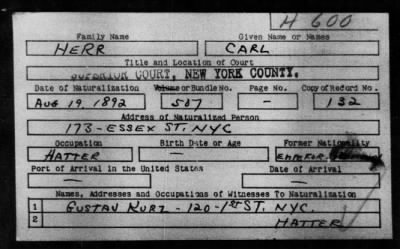 H 600
Family Name Given Name or Names
HERR CARL
Title and Location of Court
SUPERIOR COURT, NEW YORK COUNTY.
Date of Naturalization Volume or Bundle No. Page No. Copy of Record No.
AUG 19, 1892 507 - 132
Address of Naturalized Person
173-ESSEX ST. NYC
Occupation Birth Date or Age Former Nationality
HATTER — EMPEROR
Port of Arrival in the United States Date of Arrival
— —
Names, Addresses and Occupations of Witnesses To Naturalization
1 GUSTAV KURZ - 120-1ST ST. NYC.
2 HATTER